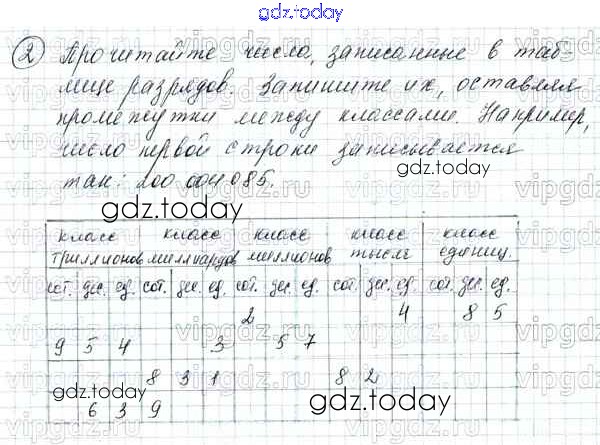 gdz.today
② Прочитайте числа, записанные в таб-
лице разрядов. Запишите их, оставляя
промежутки между классами. Например,
число первой строки записывается
так: 200 004 085.
gdz.today
gdz.today
класс триллионов класс миллиардов класс миллионов класс тысяч класс единиц.
сот. дес. ед. сот. дес. ед. сот. дес. ед. сот. дес. ед. сот. дес. ед.
2 4 8 5
9 5 4 3 5 7
8 3 1 8 2
6 3 9
gdz.today
gdz.today
vipgdz.ru